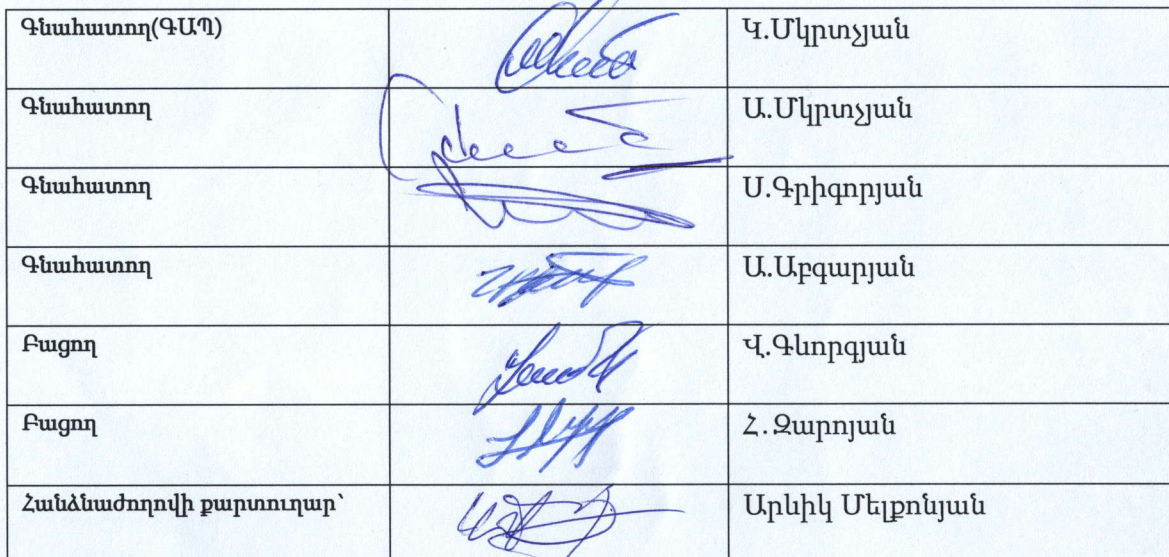 Գնահատող(ԳԱՊ) Կ.Մկրտչյան
Գնահատող Ա.Մկրտչյան
Գնահատող Ս.Գրիգորյան
Գնահատող Ա.Աբգարյան
Բացող Վ.Գևորգյան
Բացող Հ.Զարոյան
Հանձնաժողովի քարտուղար՝ Արևիկ Մելքոնյան